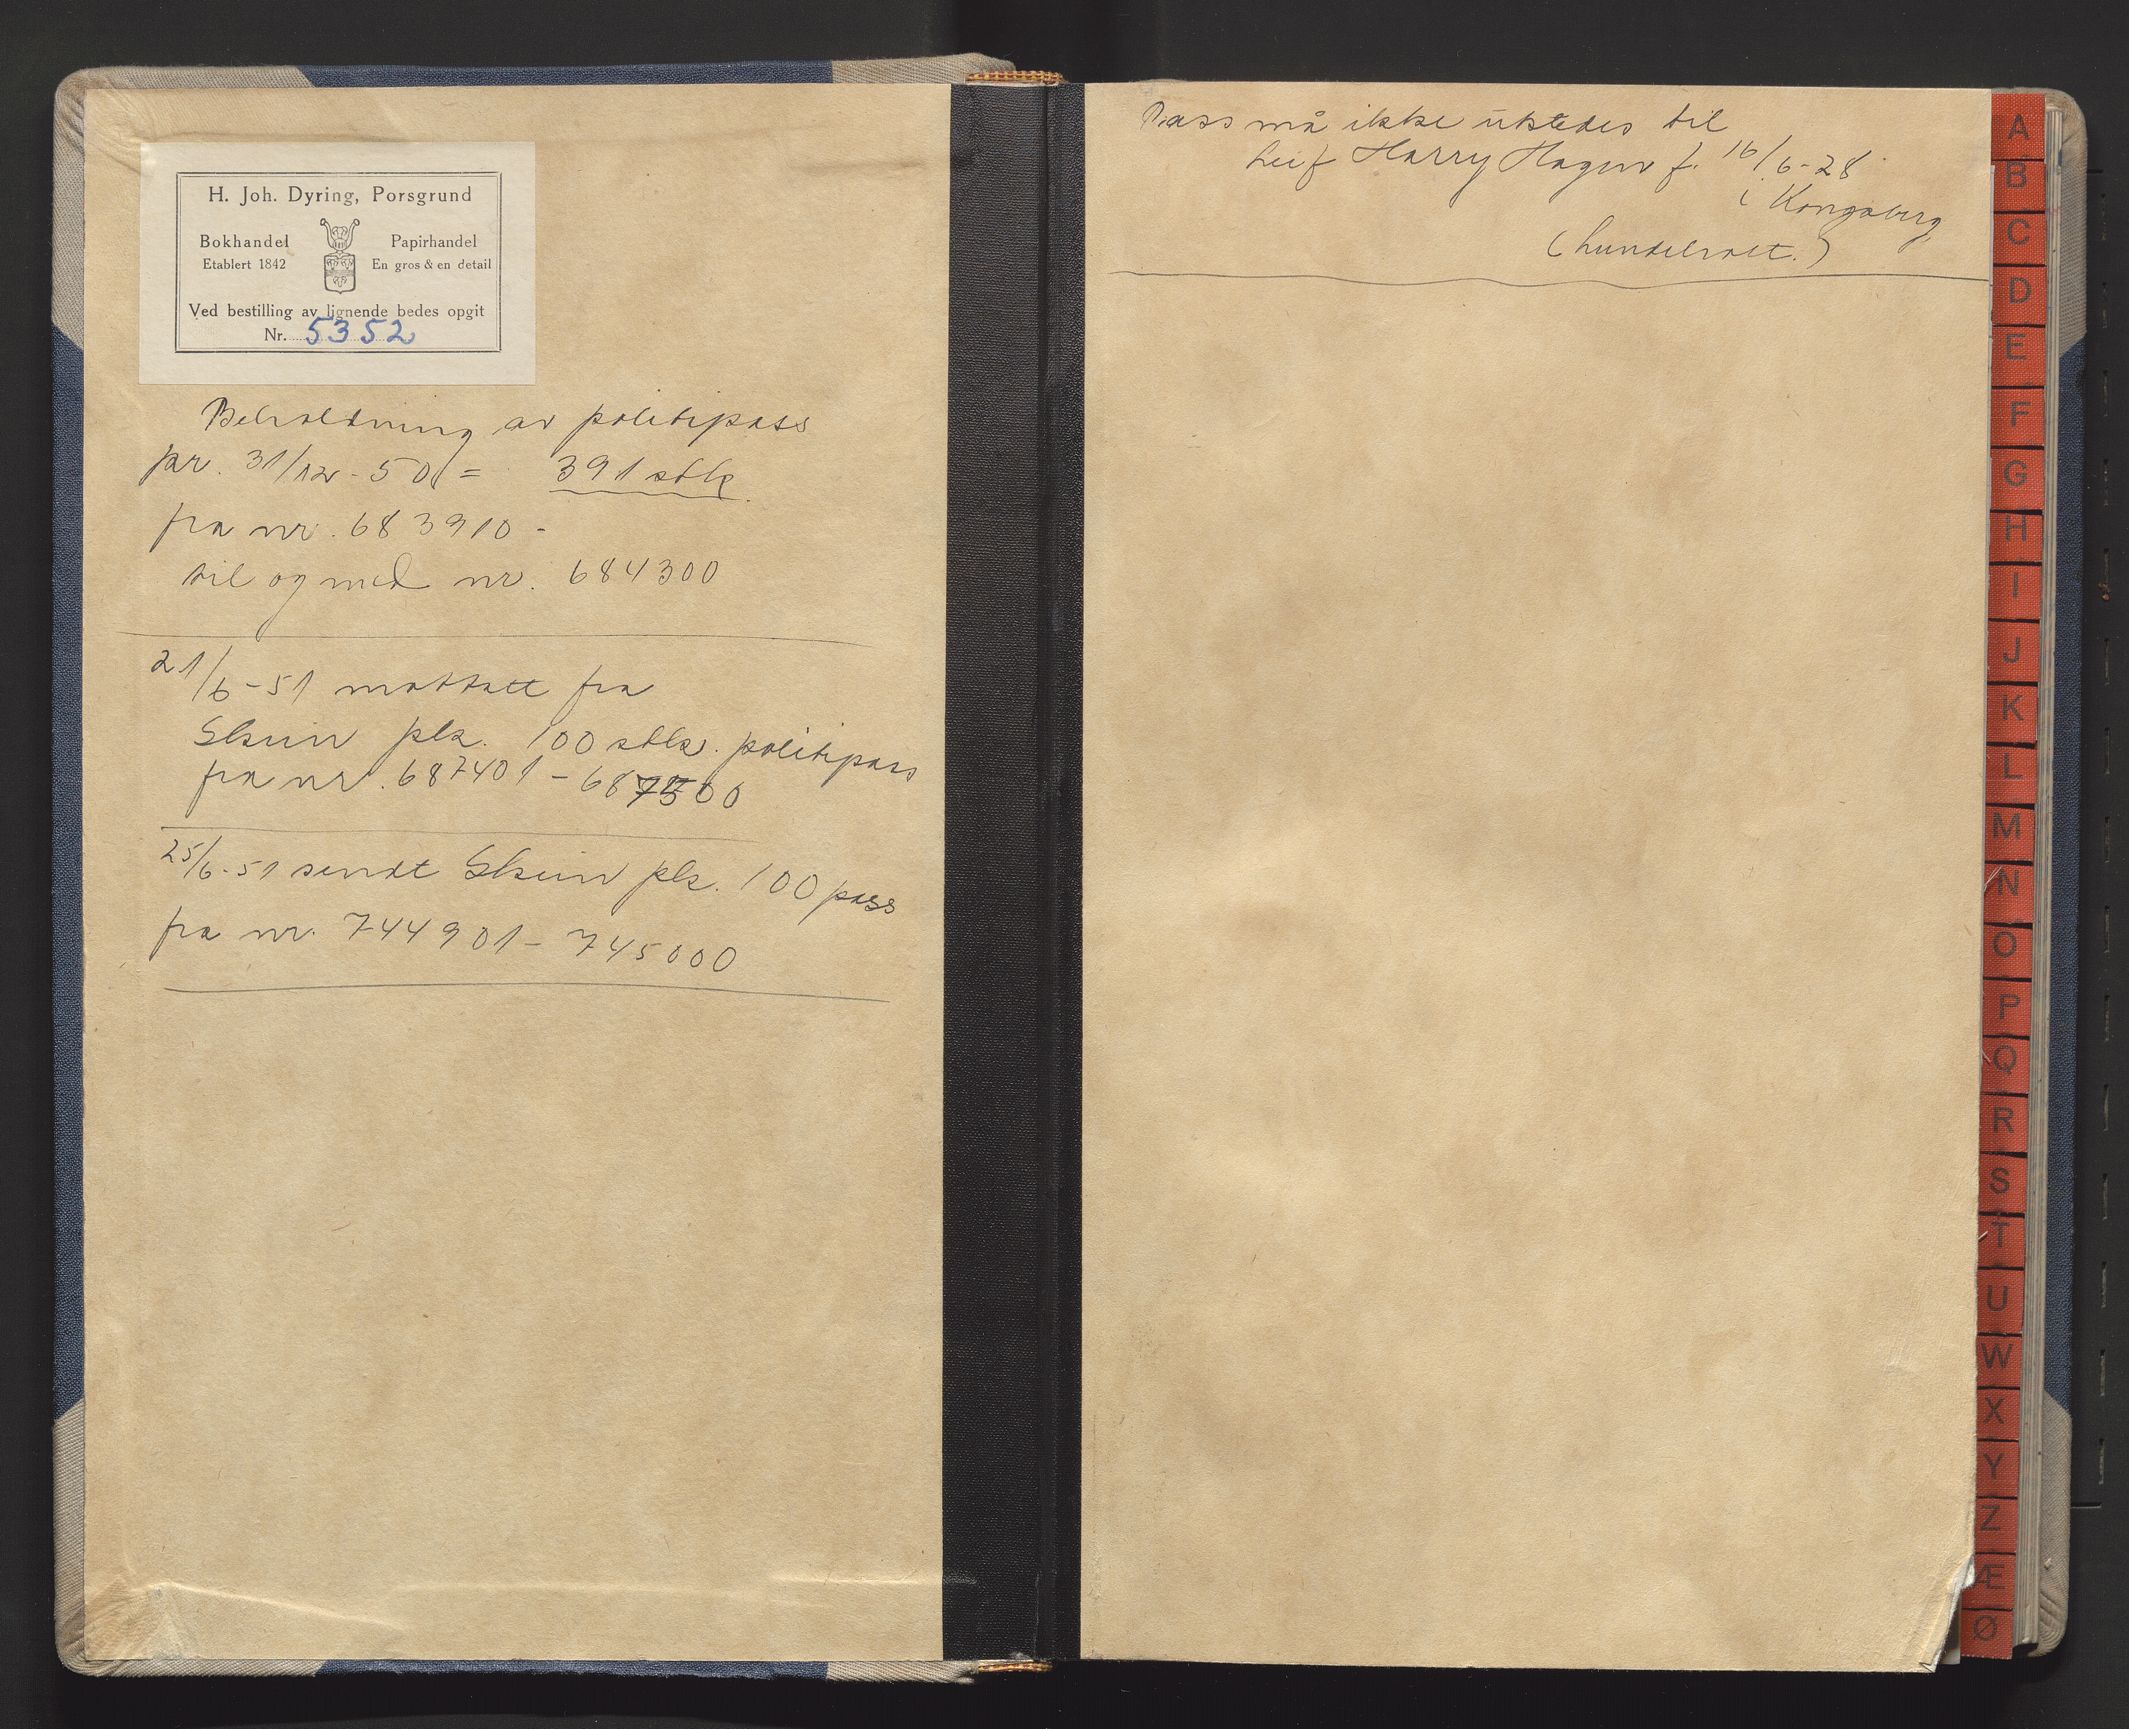 H. Joh. Dyring, Porsgrund
Bokhandel
Etablert 1842
Papirhandel
En gros & en detail
Ved bestilling av lignende bedes opgit
Nr. 5352
Beholdning av politipass
pr. 31/12-50 = 391 stk.
fra nr. 683910 -
til og med nr. 684300
21/6-51 mottatt fra
Skien plk. 100 stk. politipass
fra nr. 687401 - 687500
25/6-51 sendt Skien plk. 100 pass
fra nr. 744901 - 745000
Pass må ikke utstedes til
Leif Harry Hagen f. 16/6-28
i Kongsberg
A
B
C
D
E
F
G
H
I
J
K
L
M
N
O
P
Q
R
S
T
U
W
X
Y
Z
Æ
Ø